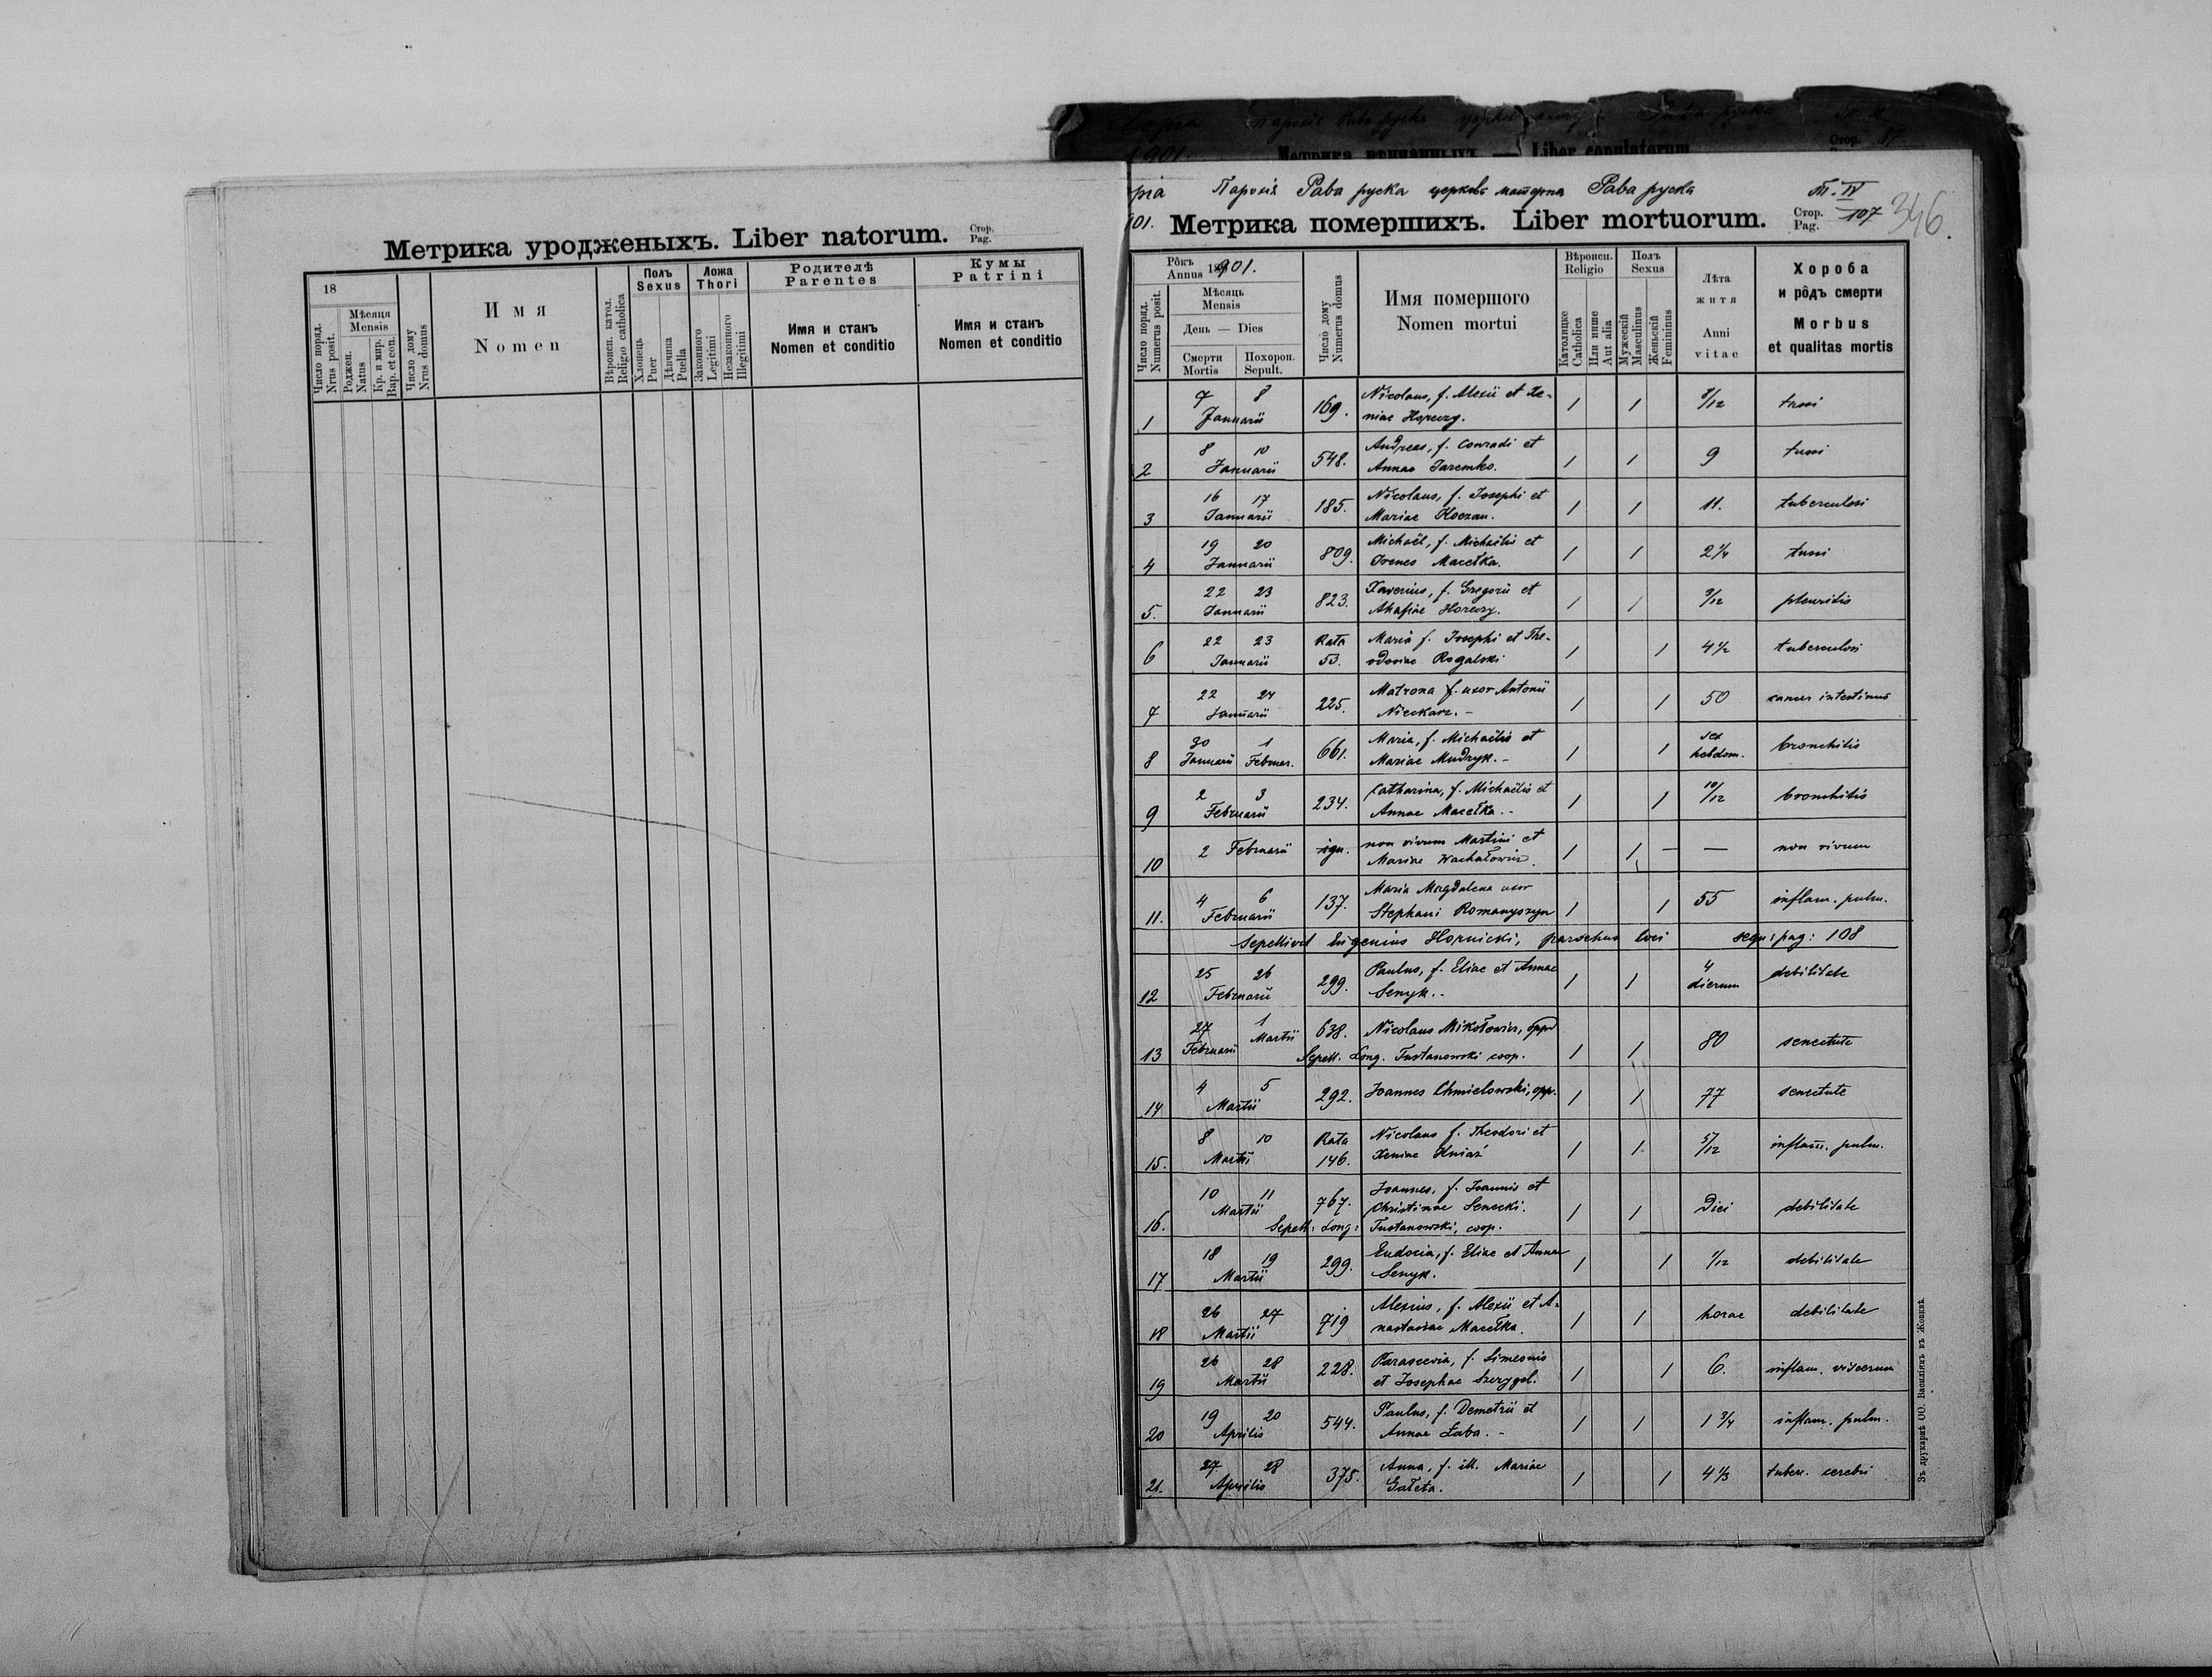 Метрика уродженыхъ. Liber natorum. Стор. Pag.
18
Число поряд. Nrus posit.
Мѣсяця Mensis
Роджен. Natus
Кр. и мир. Bap. et con.
Число дому Nrus domus
Имя
Nomen
Вѣроисп. катол. Religio catholica
Полъ Sexus
Хлопець Puer
Дѣвчина Puella
Ложа Thori
Законного Legitimi
Незаконного Illegitimi
Родителѣ
Parentes
Имя и станъ
Nomen et conditio
Кумы
Patrini
Имя и станъ
Nomen et conditio
Метрика вѣнчанныхъ. — Liber copulatorum
Стор. 87.
рia Парохія Рава руска церковь матерна Рава руска Т. IV
01. Метрика помершихъ. Liber mortuorum. Стор. Pag. 107 346.
Число поряд. Numerus posit.
Рôкъ Annus 1901.
Мѣсяць
Mensis
День — Dies
Смерти Mortis
Похорон. Sepult.
Число дому Numerus domus
Имя помершого
Nomen mortui
Вѣроисп. Religio
Католицке Catholica
Или инше Aut alia
Полъ Sexus
Мужескій Masculinus
Женьскій Femininus
Лѣта
житя
Anni
vitae
Хороба
и рôдъ смерти
Morbus
et qualitas mortis
1 7 8 Januarii 169. Nicolaus, f. Alexii et Xe-
niae Horeczy. 1 1 /12 tussi
2 8 10 Januarii 548. Andreas, f. Conradi et
Annae Jaremko. 1 1 9 tussi
3 16 17 Januarii 185. Nicolaus, f. Josephi et
Mariae Koczan. 1 1 11. tuberculosi
4 19 20 Januarii 809. Michaël, f. Michaëlis et
Irenes Macełka. 1 1 2 1/4 tussi
5. 22 23 Januarii 823. Xaverius, f. Gregorii et
Ahafiae Horeczy. 1 1 /12 pleuritis
6 22 23 Januarii Rata 53. Maria f. Josephi et The-
odosiae Rogalski 1 1 4 1/2 tuberculosi
7 22 24 Januarii 225. Matrona f. uxor Antonii
Nieckarz. - 1 1 50 cancer intestinus
8 30 Januarii 1 Februar. 661. Maria, f. Michaëlis et
Mariae Mudryk. - 1 1 sex hebdom. bronchitis
9 2 3 Februarii 234. Catharina, f. Michaëlis et
Annae Macełka. - 1 1 10/12 bronchitis
10 2 Februarii ign. non vivum Martini et
Mariae Wachałowicz. 1 1 — — non vivum
11. 4 6 Februarii 137. Maria Magdalena uxor
Stephani Romanyszyn 1 1 55 inflam. pulm.
Sepellivit Eugenius Hornicki, parochus loci sequ: pag: 108
12 25 26 Februarii 299. Paulus, f. Eliae et Annae
Senyk. - 1 1 4 dierum debilitate
13 27 Februarii 1 Martii 638. Nicolaus Mikołowicz, opp
Sepell. Long. Tustanowski coop. 1 1 80 senectute
14 4 5 Martii 292. Joannes Chmielowski, opp. 1 1 77 senectute
15. 8 10 Martii Rata 146. Nicolaus f. Theodori et
Xeniae Kniaź 1 1 5/12 inflam. pulm.
16. 10 11 Martii 767. Joannes, f. Joannis et
Christinae Senecki.
Sepell: Long: Tustanowski, coop. 1 1 Diei debilitate
17 18 19 Martii 299. Eudocia, f. Eliae et Annae
Senyk. 1 1 1/12 debilitate
18 26 27 Martii 719 Alexius, f. Alexii et A-
nastasiae Macełka. 1 1 horae debilitate
19 26 28 Martii 228. Parascevia, f. Simeonis
et Josephae Szczygol. 1 1 6. inflam. viscerum
20 19 20 Aprilis 544. Paulus, f. Demetrii et
Annae Łaba. - 1 1 1 3/4 inflam. pulm.
21. 27 28 Aprilis 375. Anna, f. ill. Mariae
Gałeta. 1 1 4 1/3 tuberc. cerebri
Зъ друкарнѣ ОО. Василіянъ въ Жовквѣ.